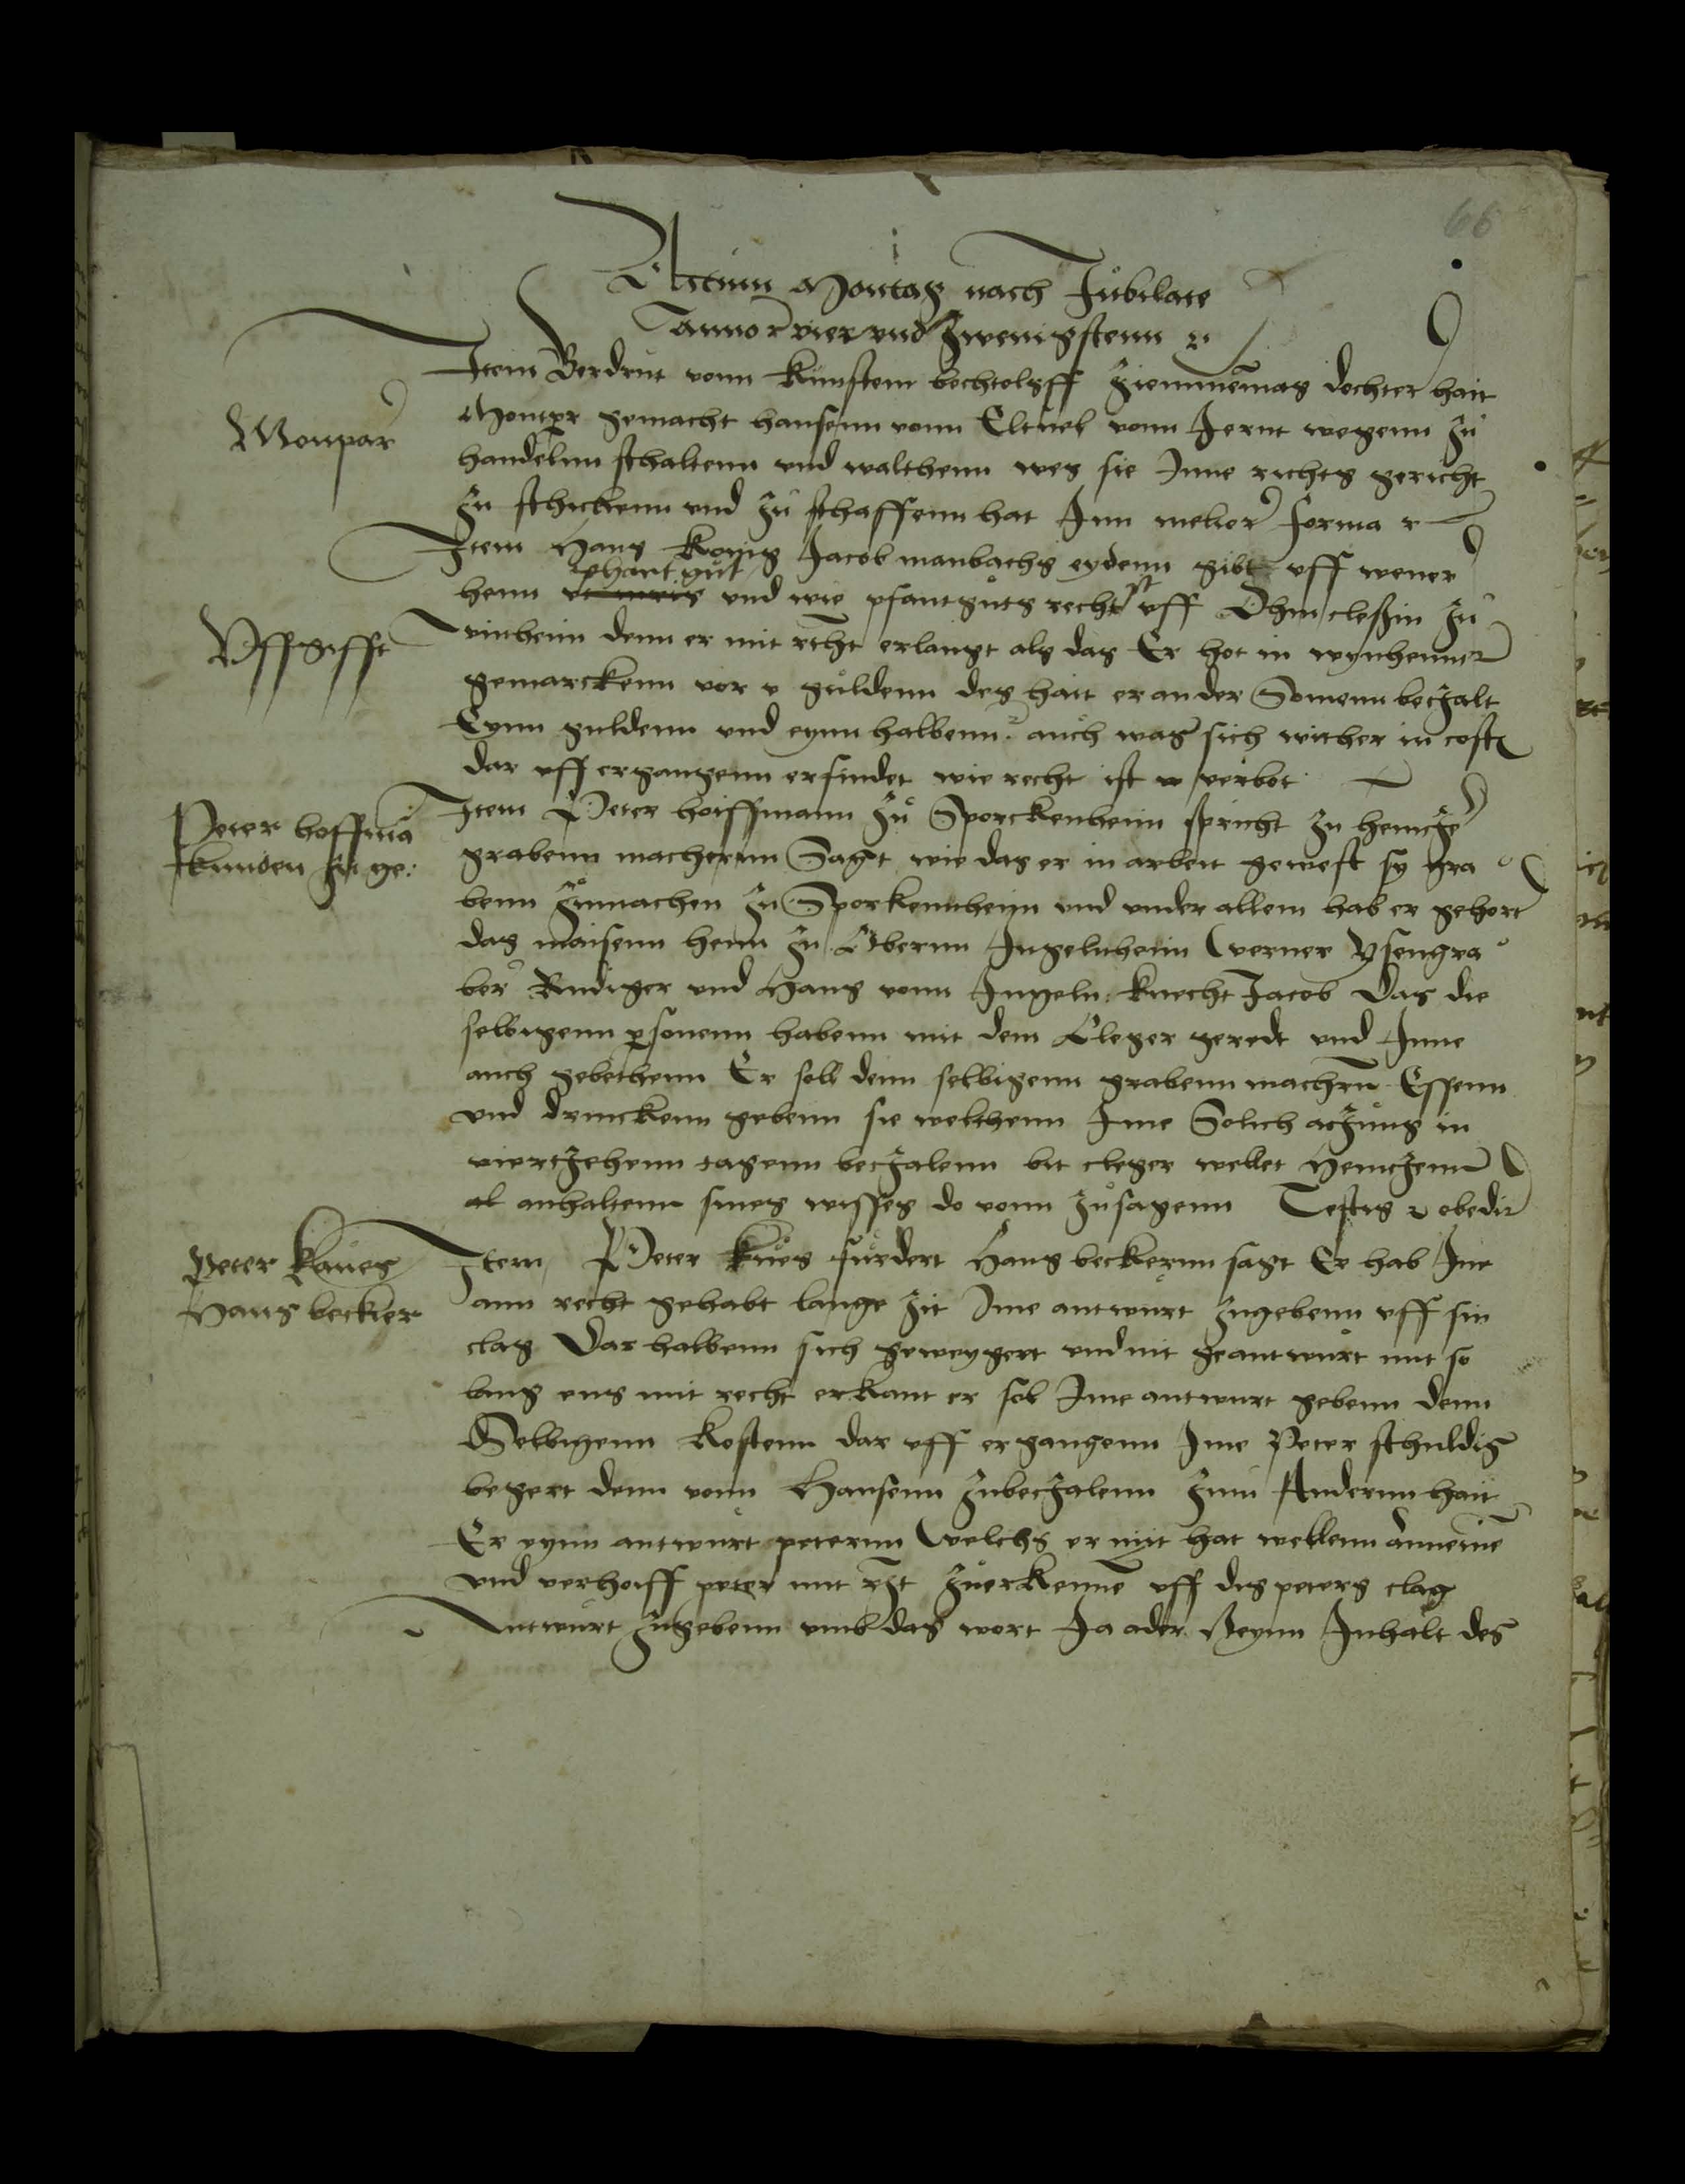 66
Actum Montag nach Jubilate
Anno vier und Zwenigstenn
Monpar
Item Gerdrut vonn kunstem bechtolsff dochter hait
Montpar gemacht hansenn vonn Eltuel vonn Jernt wegenn zu
handelnn schaltenn und walthenn wes sie Inne richts gericht
zu schickenn und zu schaffenn hat Inn melior forma
Item Hans Konig Jacob manbachs eydenn gibt uff wener
phant gut
Uffgifft
henn und wie pfantguts recht ist uff Ohm cleßin zu
winheim denn er mit recht erlangt als das Er hot in wynheimer
gemarckenn vor v guldenn des hait er an der Somenn beczalt
Eynn guldenn und eynn halbenn auch was sich wither in cost
dar uff ergangenn erfindet wie recht ist verbot
Peter hoffma
kunden zu ge:
Item Peter hoiffmann zu Sporckenheim spricht zu heincze
grabenn machernn Sagt wie das er in arbeit gewest sy gra
benn zumachen zu Sporkennheim und under allem hab er gehort
das maisenn henn zu Obernn Ingelnheim werner Ysengra
ber Rudiger und Hans vonn Ingeln: knecht Jacob Das die
selbigenn personenn habenn mit dem Cleger geredt und Inne
auch gebethenn Er soll denn selbigenn grabenn machern Essenn
und drinckenn gebenn sie welthenn Ime Solich aczung in
viertzehenn tagenn beczalenn bit cleger wellet Heinczenn
al anhaltenn sines wisses do vonn zusagenn Testis obedir
Peter Kaues
Hans becker
Item Peter kues furdert Hans beckernn sagt Er hab Ine
ann recht gehabt lange zit Ime antwurt zugebenn uff sin
clag Dar halbenn sich geweygert und nit geantwurt mit so
lang uns mit recht erkant er sol Ime antwurt gebenn denn
Selbigenn kostenn dar uff ergangenn Ime Peter schuldig
begert denn vonn Hansenn zubeczalenn zum Andernn hait
Er eynn antwurt peternn welchs er nit hat wellenn annemen
und verhoiff peter mit recht zuerkenne uff dis peters clag
Antwurt zugebenn umb das wort Ja ader Neynn Inhalt des